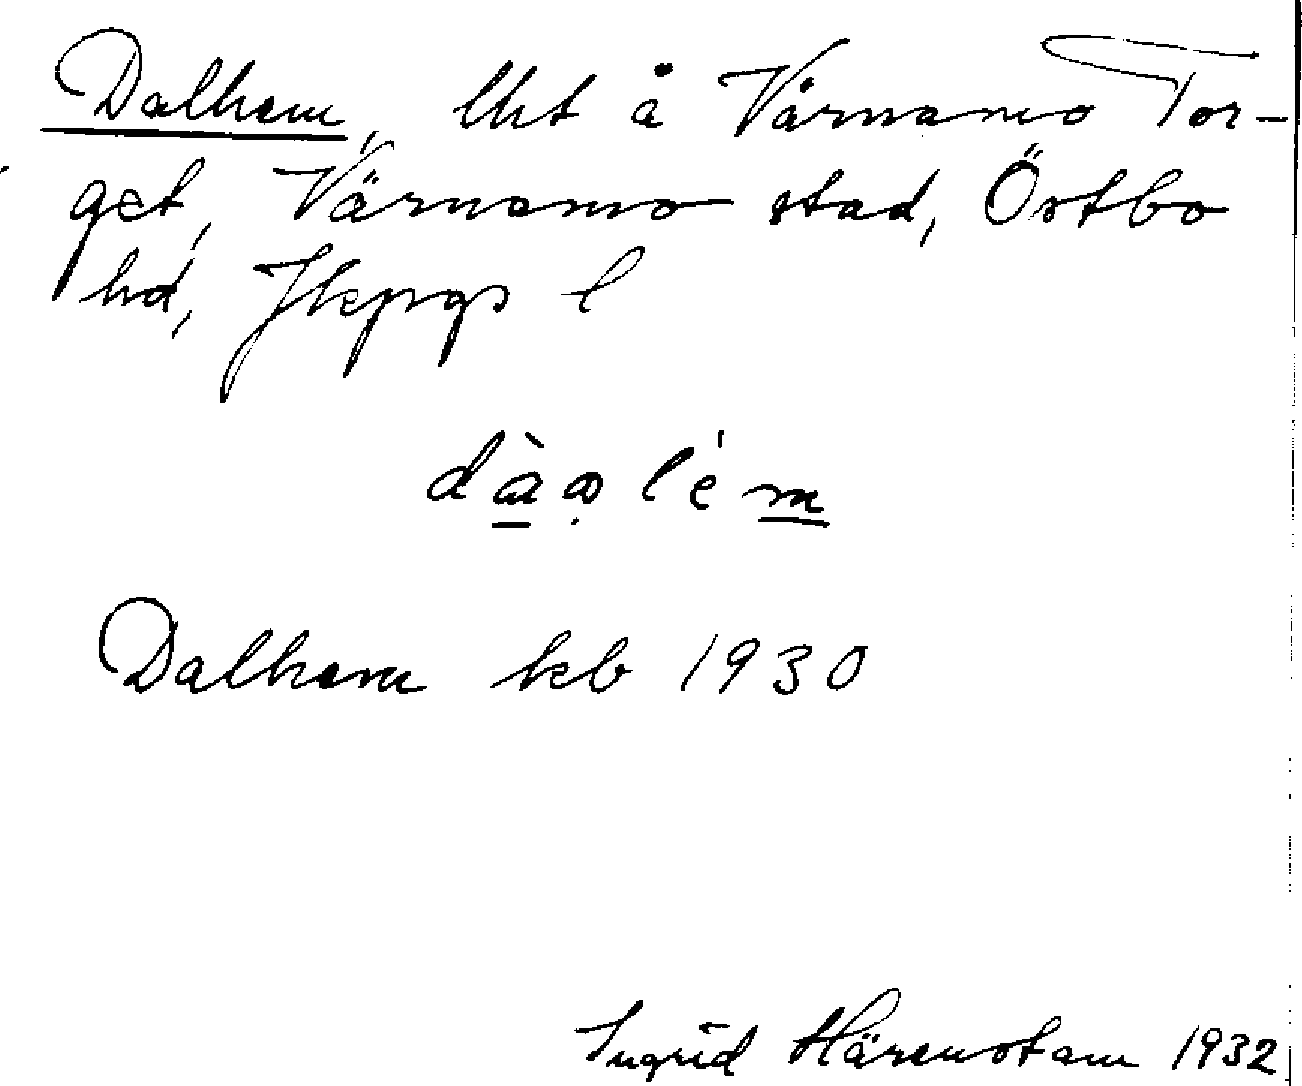 Dalhem, lht å Värnamo Tor-
get, Värnamo stad, Östbo
hd, Jkpgs l
dàꝏlém
Dalhem kb 1930
Ingrid Härenstam 1932